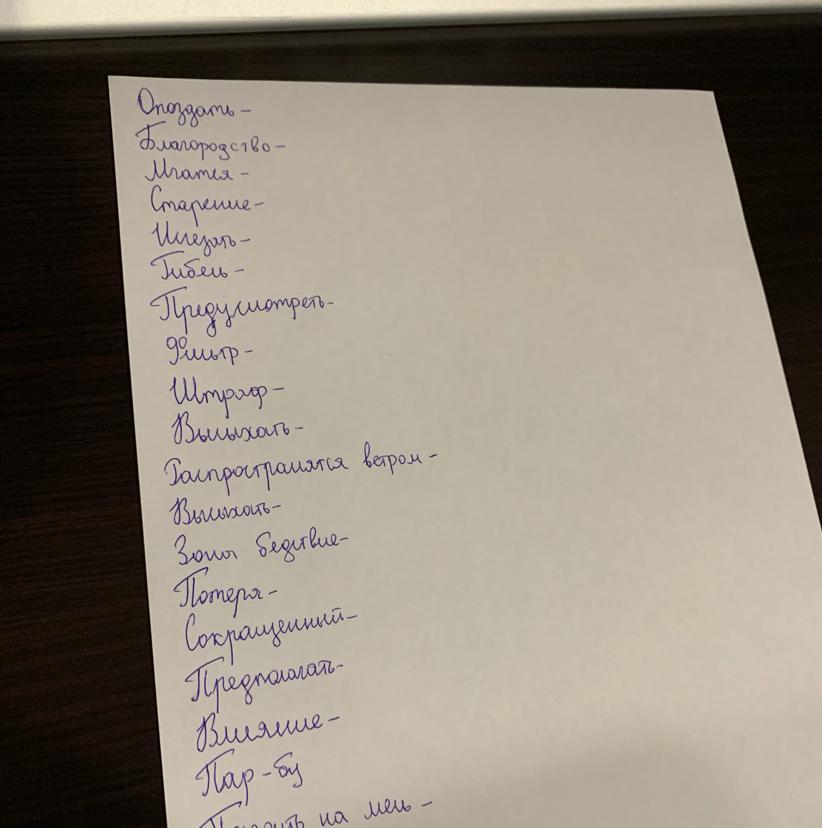 Опоздать -
Благородство -
Мчатся -
Старение -
Исчезать -
Гибель -
Предусмотреть -
Фильтр -
Штраф -
Высыхать -
Распространятся ветром -
Высыхать -
Зоны бедствие -
Потеря -
Сокращенный -
Предполагать -
Влияние -
Пар - бу
на мель -